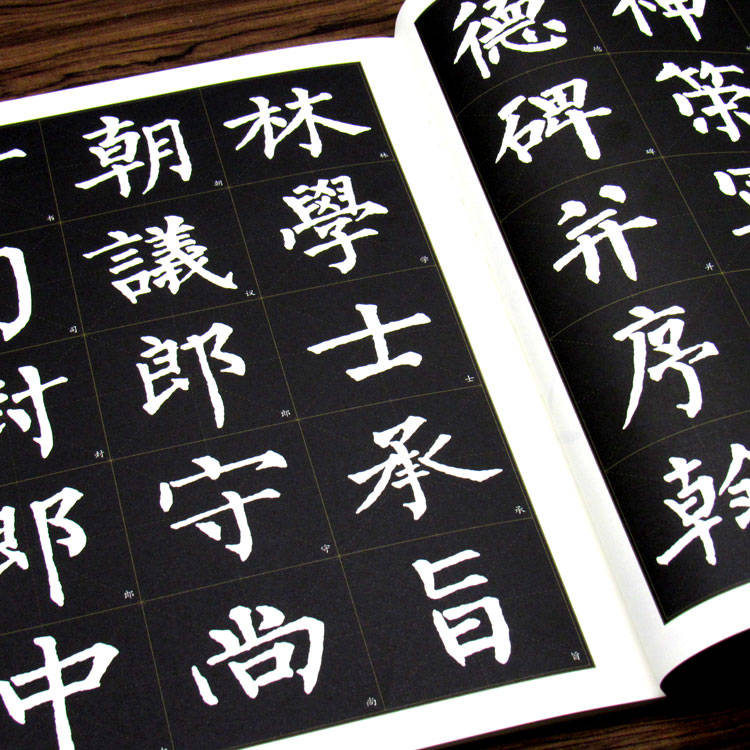 神策
德碑并序翰
德碑并
林學士承旨
林学士承旨
朝議郎守尚
朝议郎守尚
司封郎中
书司封郎